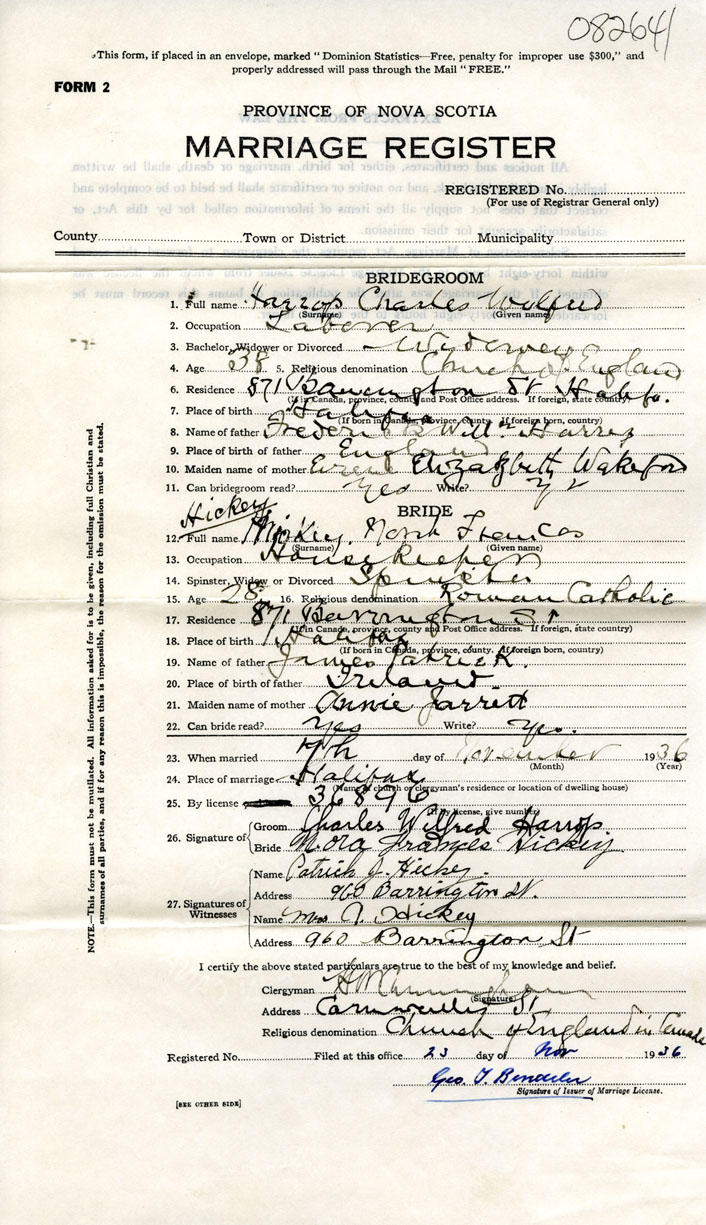 082641
This form, if placed in an envelope, marked "Dominion Statistics—Free, penalty for improper use $300," and
properly addressed will pass through the Mail "FREE."
FORM 2
PROVINCE OF NOVA SCOTIA
MARRIAGE REGISTER
REGISTERED No.
(For use of Registrar General only)
County Town or District Municipality
BRIDEGROOM
1. Full name Harrop Charles Wilfred
(Surname) (Given name)
2. Occupation Laborer
3. Bachelor, Widower or Divorced Widower
4. Age 38 5. Religious denomination Church of England
6. Residence 871 Barrington St Halifx.
(If in Canada, province, county and Post Office address. If foreign, state country)
7. Place of birth Halifax
(If born in Canada, province, county. If foreign born, country)
8. Name of father Frederick Harrop
9. Place of birth of father England
10. Maiden name of mother Elizabeth Wakeford
11. Can bridegroom read? Yes Write? Yes
BRIDE
Hickey
12. Full name Nora Frances
(Surname) (Given name)
13. Occupation House Keeper
14. Spinster, Widow or Divorced Spinster
15. Age 28 16. Religious denomination Roman Catholic
17. Residence 871 Barrington St
(If in Canada, province, county and Post Office address. If foreign, state country)
18. Place of birth Halifax
(If born in Canada, province, county. If foreign born, country)
19. Name of father James Patrick.
20. Place of birth of father Ireland
21. Maiden name of mother Annie Jarrett
22. Can bride read? Yes Write? Yes.
23. When married 7th day of November 1936
(Month) (Year)
24. Place of marriage Halifax
(Name of church or clergyman's residence or location of dwelling house)
25. By license 36896
(If by license, give number)
26. Signature of Groom Charles Wilfred Harrop.
Bride Nora Frances Hickey
27. Signatures of Witnesses
Name Patrick J. Hickey.
Address 960 Barrington St.
Name Mrs J. Hickey
Address 960 Barrington St
I certify the above stated particulars are true to the best of my knowledge and belief.
Clergyman
(Signature)
Address Cornwallis St
Religious denomination Church of England in Canada
Registered No. Filed at this office 23 day of Nov 1936
Geo. T.
Signature of Issuer of Marriage License.
[SEE OTHER SIDE]
NOTE.—This form must not be mutilated. All information asked for is to be given, including full Christian and
surnames of all parties, and if for any reason this is impossible, the reason for the omission must be stated.